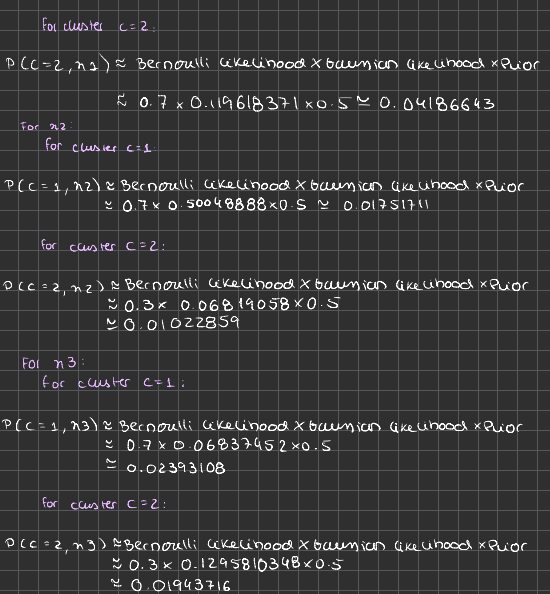 For cluster C=2:
P(C=2, x1) ≈ Bernoulli likelihood × Gaussian likelihood × Prior
≈ 0.7 × 0.119618371 × 0.5 ≃ 0.04186643
For x2:
for cluster C=1
P(C=1, x2) ≈ Bernoulli likelihood × Gaussian likelihood × Prior
≈ 0.7 × 0.50048888 × 0.5 ≃ 0.01751711
for cluster C=2:
P(C=2, x2) ≈ Bernoulli likelihood × Gaussian likelihood × Prior
≃ 0.3 × 0.06819058 × 0.5
≃ 0.01022859
For x3:
for cluster C=1:
P(C=1, x3) ≈ Bernoulli likelihood × Gaussian likelihood × Prior
≃ 0.7 × 0.06837452 × 0.5
≃ 0.02393108
for cluster C=2:
P(C=2, x3) ≈ Bernoulli likelihood × Gaussian likelihood × Prior
≃ 0.3 × 0.1295810348 × 0.5
≃ 0.01943716